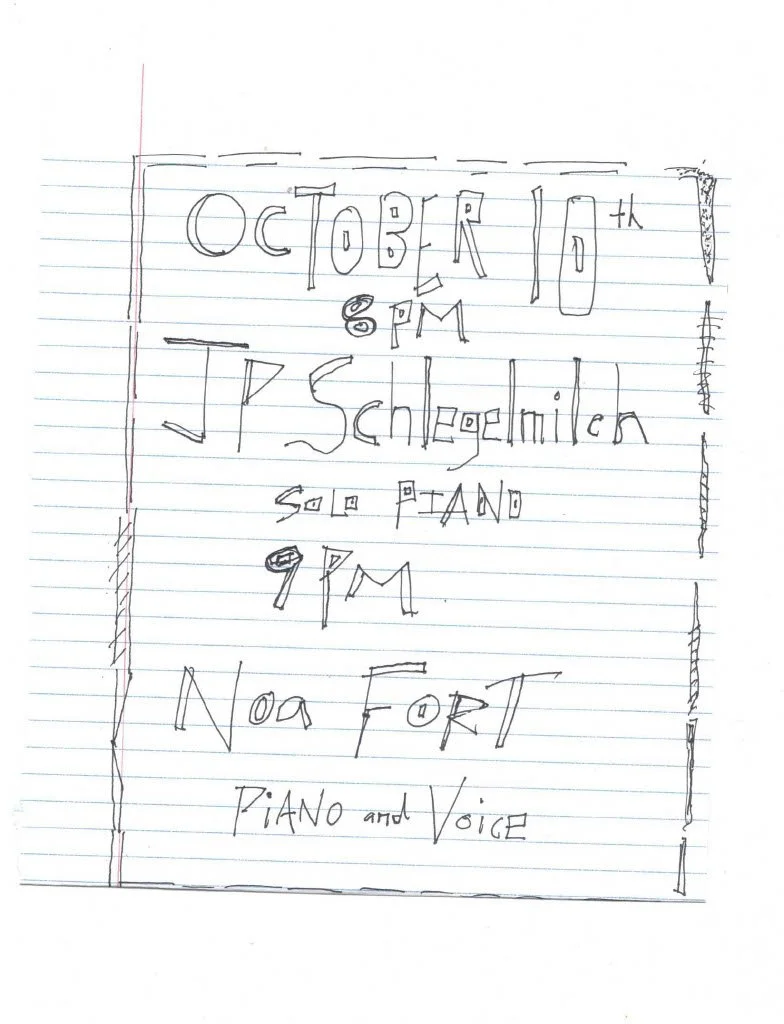 OCTOBER 10th
8 PM
JP Schlegelmilch
Solo PIANO
9 PM
Noa FORT
PiANO and Voice